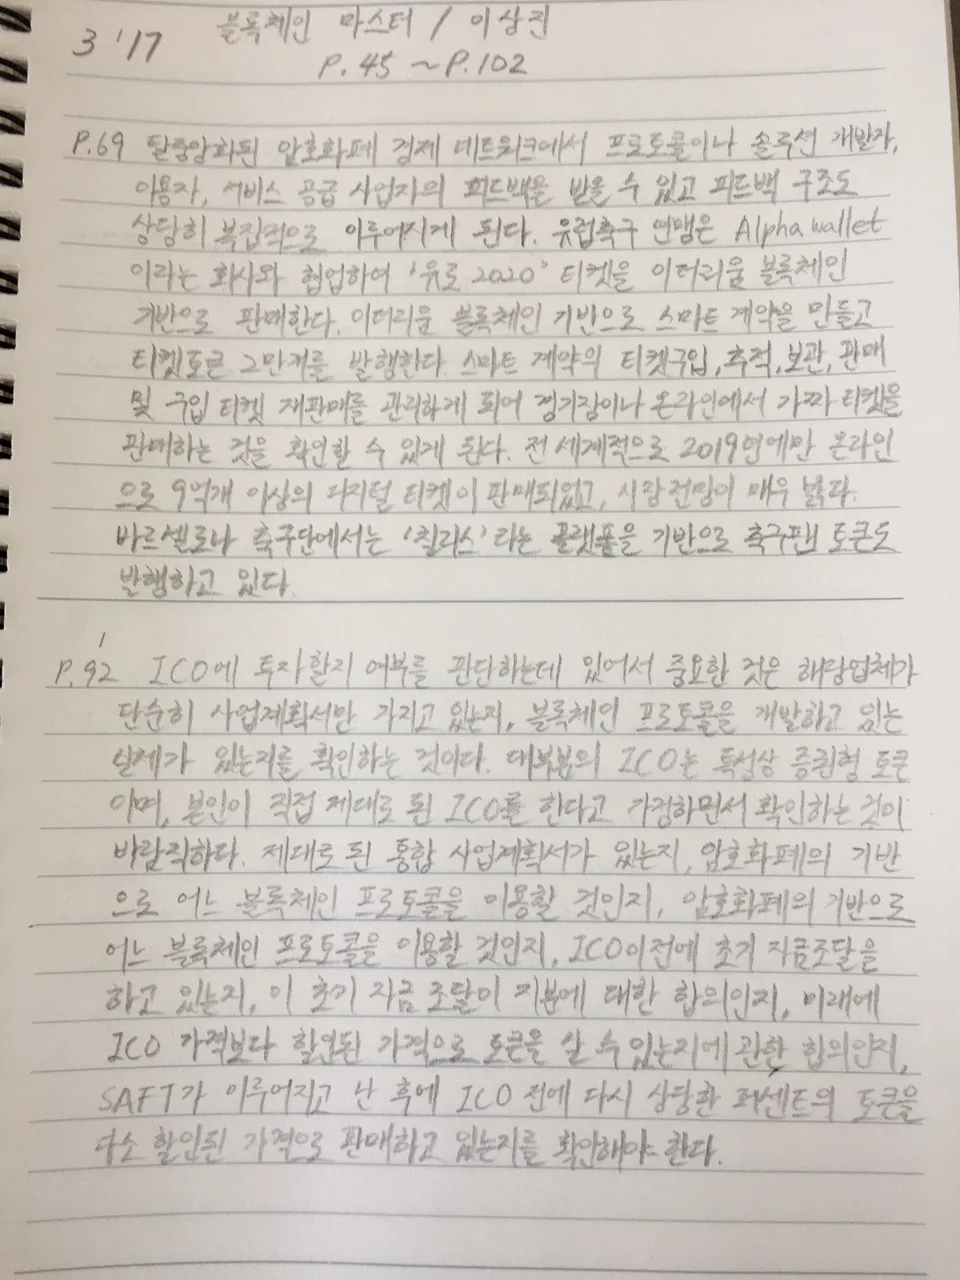 3 '17
블록체인 마스터 / 이상진
P.45 ~P.102
P.69 탈중앙화된 암호화폐 경제 네트워크에서 프로토콜이나 솔루션 개발자,
이용자, 서비스 공급 사업자의 피드백을 받을 수 있고 피드백 구조도
상당히 복잡적으로 이루어지게 된다. 유럽축구 연맹은 Alpha wallet
이라는 회사와 협업하여 '유로 2020' 티켓을 이더리움 블록체인
기반으로 판매한다. 이더리움 블록체인 기반으로 스마트 계약을 만들고
티켓토큰 2만개를 발행한다 스마트 계약의 티켓구입, 추적, 보관, 판매
및 구입 티켓 재판매를 관리하게 되어 경기장이나 온라인에서 가짜 티켓을
판매하는 것을 확인할 수 있게 된다. 전 세계적으로 2019년에만 온라인
으로 9억개 이상의 디지털 티켓이 판매되었고, 시장전망이 매우 밝다.
바르셀로나 축구단에서는 '칠리스' 라는 플랫폼을 기반으로 축구팬 토큰도
발행하고 있다.
P.92 ICO에 투자할지 여부를 판단하는데 있어서 중요한 것은 해당업체가
단순히 사업계획서만 가지고 있는지, 블록체인 프로토콜을 개발하고 있는
실체가 있는지를 확인하는 것이다. 대부분의 ICO는 특성상 증권형 토큰
이며, 본인이 직접 제대로 된 ICO를 한다고 가정하면서 확인하는 것이
바람직하다. 제대로 된 통합 사업계획서가 있는지, 암호화폐의 기반
으로 어느 블록체인 프로토콜을 이용할 것인지, 암호화폐의 기반으로
어느 블록체인 프로토콜을 이용할 것인지, ICO이전에 초기 자금조달을
하고 있는지, 이 초기 자금 조달이 지분에 대한 합의인지, 미래에
ICO 가격보다 할인된 가격으로 토큰을 살 수 있는지에 관한 합의인지,
SAFT가 이루어지고 난 후에 ICO 전에 다시 상당한 퍼센트의 토큰을
다소 할인된 가격으로 판매하고 있는지를 확인해야 한다.